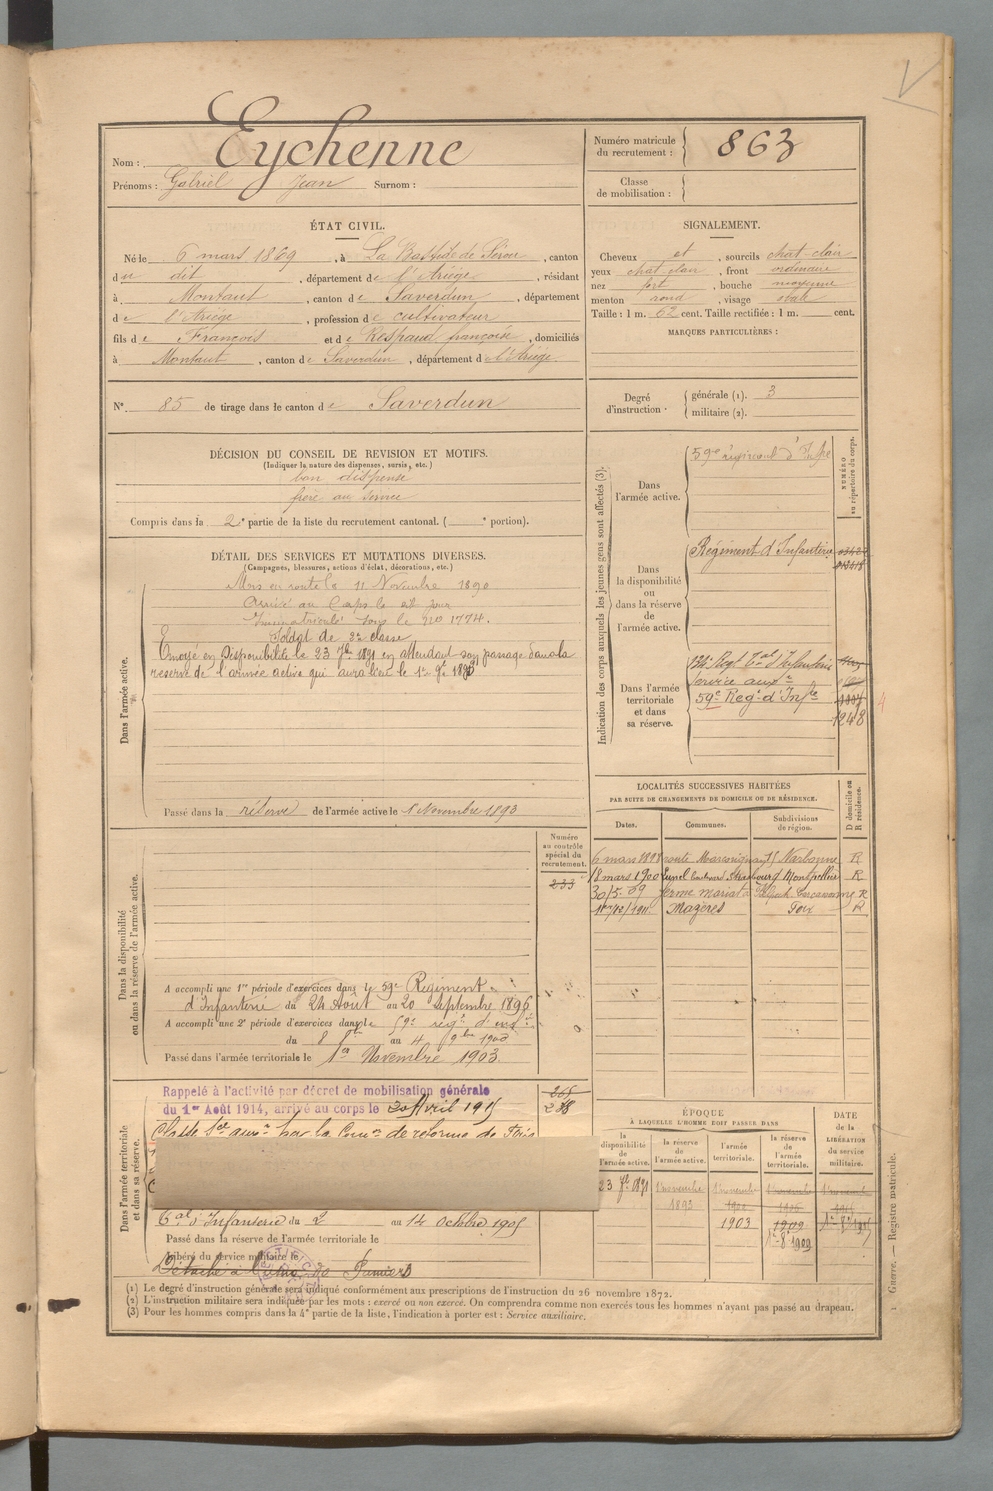 Eychenne
Nom :
Prénoms : Gabriel Jean Surnom :
Numéro matricule du recrutement : 863
Classe de mobilisation :
ÉTAT CIVIL.
Né le 6 mars 1869, à La Bastide de Sérou, canton
du dit, département de l'Ariège, résidant
à Montaut, canton de Saverdun, département
de l'Ariège, profession de cultivateur
fils de François et de Respaud françoise, domiciliés
à Montaut, canton de Saverdun, département d l'Ariège.
SIGNALEMENT.
Cheveux et, sourcils chat clair
yeux chat clair, front ordinaire
nez fort, bouche moyenne
menton rond, visage ovale
Taille : 1 m. 62 cent. Taille rectifiée : 1 m. cent.
MARQUES PARTICULIÈRES :
N° 85 de tirage dans le canton de Saverdun
Degré d'instruction : générale (1). 3
militaire (2).
DÉCISION DU CONSEIL DE REVISION ET MOTIFS.
(Indiquer la nature des dispenses, sursis, etc.)
bon dispensé
frère au service
Compris dans la 2e partie de la liste du recrutement cantonal. ( e portion).
DÉTAIL DES SERVICES ET MUTATIONS DIVERSES.
(Campagnes, blessures, actions d'éclat, décorations, etc.)
Dans l'armée active.
Mis en route le 11 Novembre 1890
Arrivé au Corps le dit jour
Immatriculé sous le no 1774.
Soldat de 2e classe
Envoyé en Disponibilité le 23 7bre 1891 en attendant son passage dans la
réserve de l'armée active qui aura lieu le 1er 9bre 1893
Passé dans la réserve de l'armée active le 1 Novembre 1893
Indication des corps auxquels les jeunes gens sont affectés (3).
NUMÉRO au répertoire du corps.
Dans l'armée active.
59e régiment d'Inf
Dans la disponibilité ou dans la réserve de l'armée active.
Régiment d'Infanterie
Dans l'armée territoriale et dans sa réserve.
134e Regt Tal d'Infanterie
Service auxre
59e Regt d'Infie
1248
LOCALITÉS SUCCESSIVES HABITÉES
PAR SUITE DE CHANGEMENTS DE DOMICILE OU DE RÉSIDENCE.
Dates. Communes. Subdivisions de région. D domicile ou R résidence.
6 mars 1898 route Narbonne R
18 mars 1900 Lunel boulevard Strasbourg Montpellier R
30/5-09 ferme Carcassonne R
Mazères Foix R
Dans la disponibilité ou dans la réserve de l'armée active.
Numéro au contrôle spécial du recrutement.
233
A accompli une 1re période d'exercices dans le 59e Régiment
d'Infanterie du 24 Août au 20 Septembre 1896
A accompli une 2e période d'exercices dans le 59e régt d'infie
du 8 au 4 9bre 1900
Passé dans l'armée territoriale le 1er Novembre 1903
Dans l'armée territoriale et dans sa réserve.
Rappelé à l'activité par décret de mobilisation générale
du 1er Août 1914, arrivé au corps le 30 Avril 1915
Classé Sce auxre par la Comon de réforme de Foix
Tal d'Infanterie du 2 au 14 octobre 1905
Passé dans la réserve de l'armée territoriale le
Libéré du service militaire le
Pamiers
ÉPOQUE
À LAQUELLE L'HOMME DOIT PASSER DANS
DATE DE LA LIBÉRATION du service militaire.
la disponibilité de l'armée active.
la réserve de l'armée active.
l'armée territoriale.
la réserve de l'armée territoriale.
23 7bre 1891
1 novembre 1893
1903
1909
(1) Le degré d'instruction générale sera indiqué conformément aux prescriptions de l'instruction du 26 novembre 1872.
(2) L'instruction militaire sera indiquée par les mots : exercé ou non exercé. On comprendra comme non exercés tous les hommes n'ayant pas passé au drapeau.
(3) Pour les hommes compris dans la 4e partie de la liste, l'indication à porter est : Service auxiliaire.
Guerre. — Registre matricule.